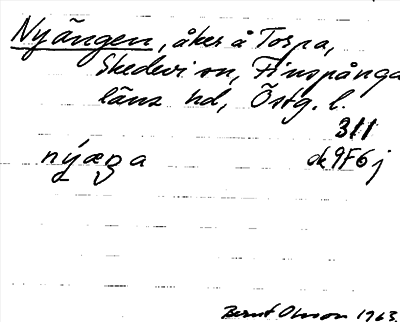 Nyängen, åker å Torpa,
Skedevi sn, Finspånga
läns hd, Östg. l.
311
nýæŋa ek 9F6j
Bernt Olsson 1963.